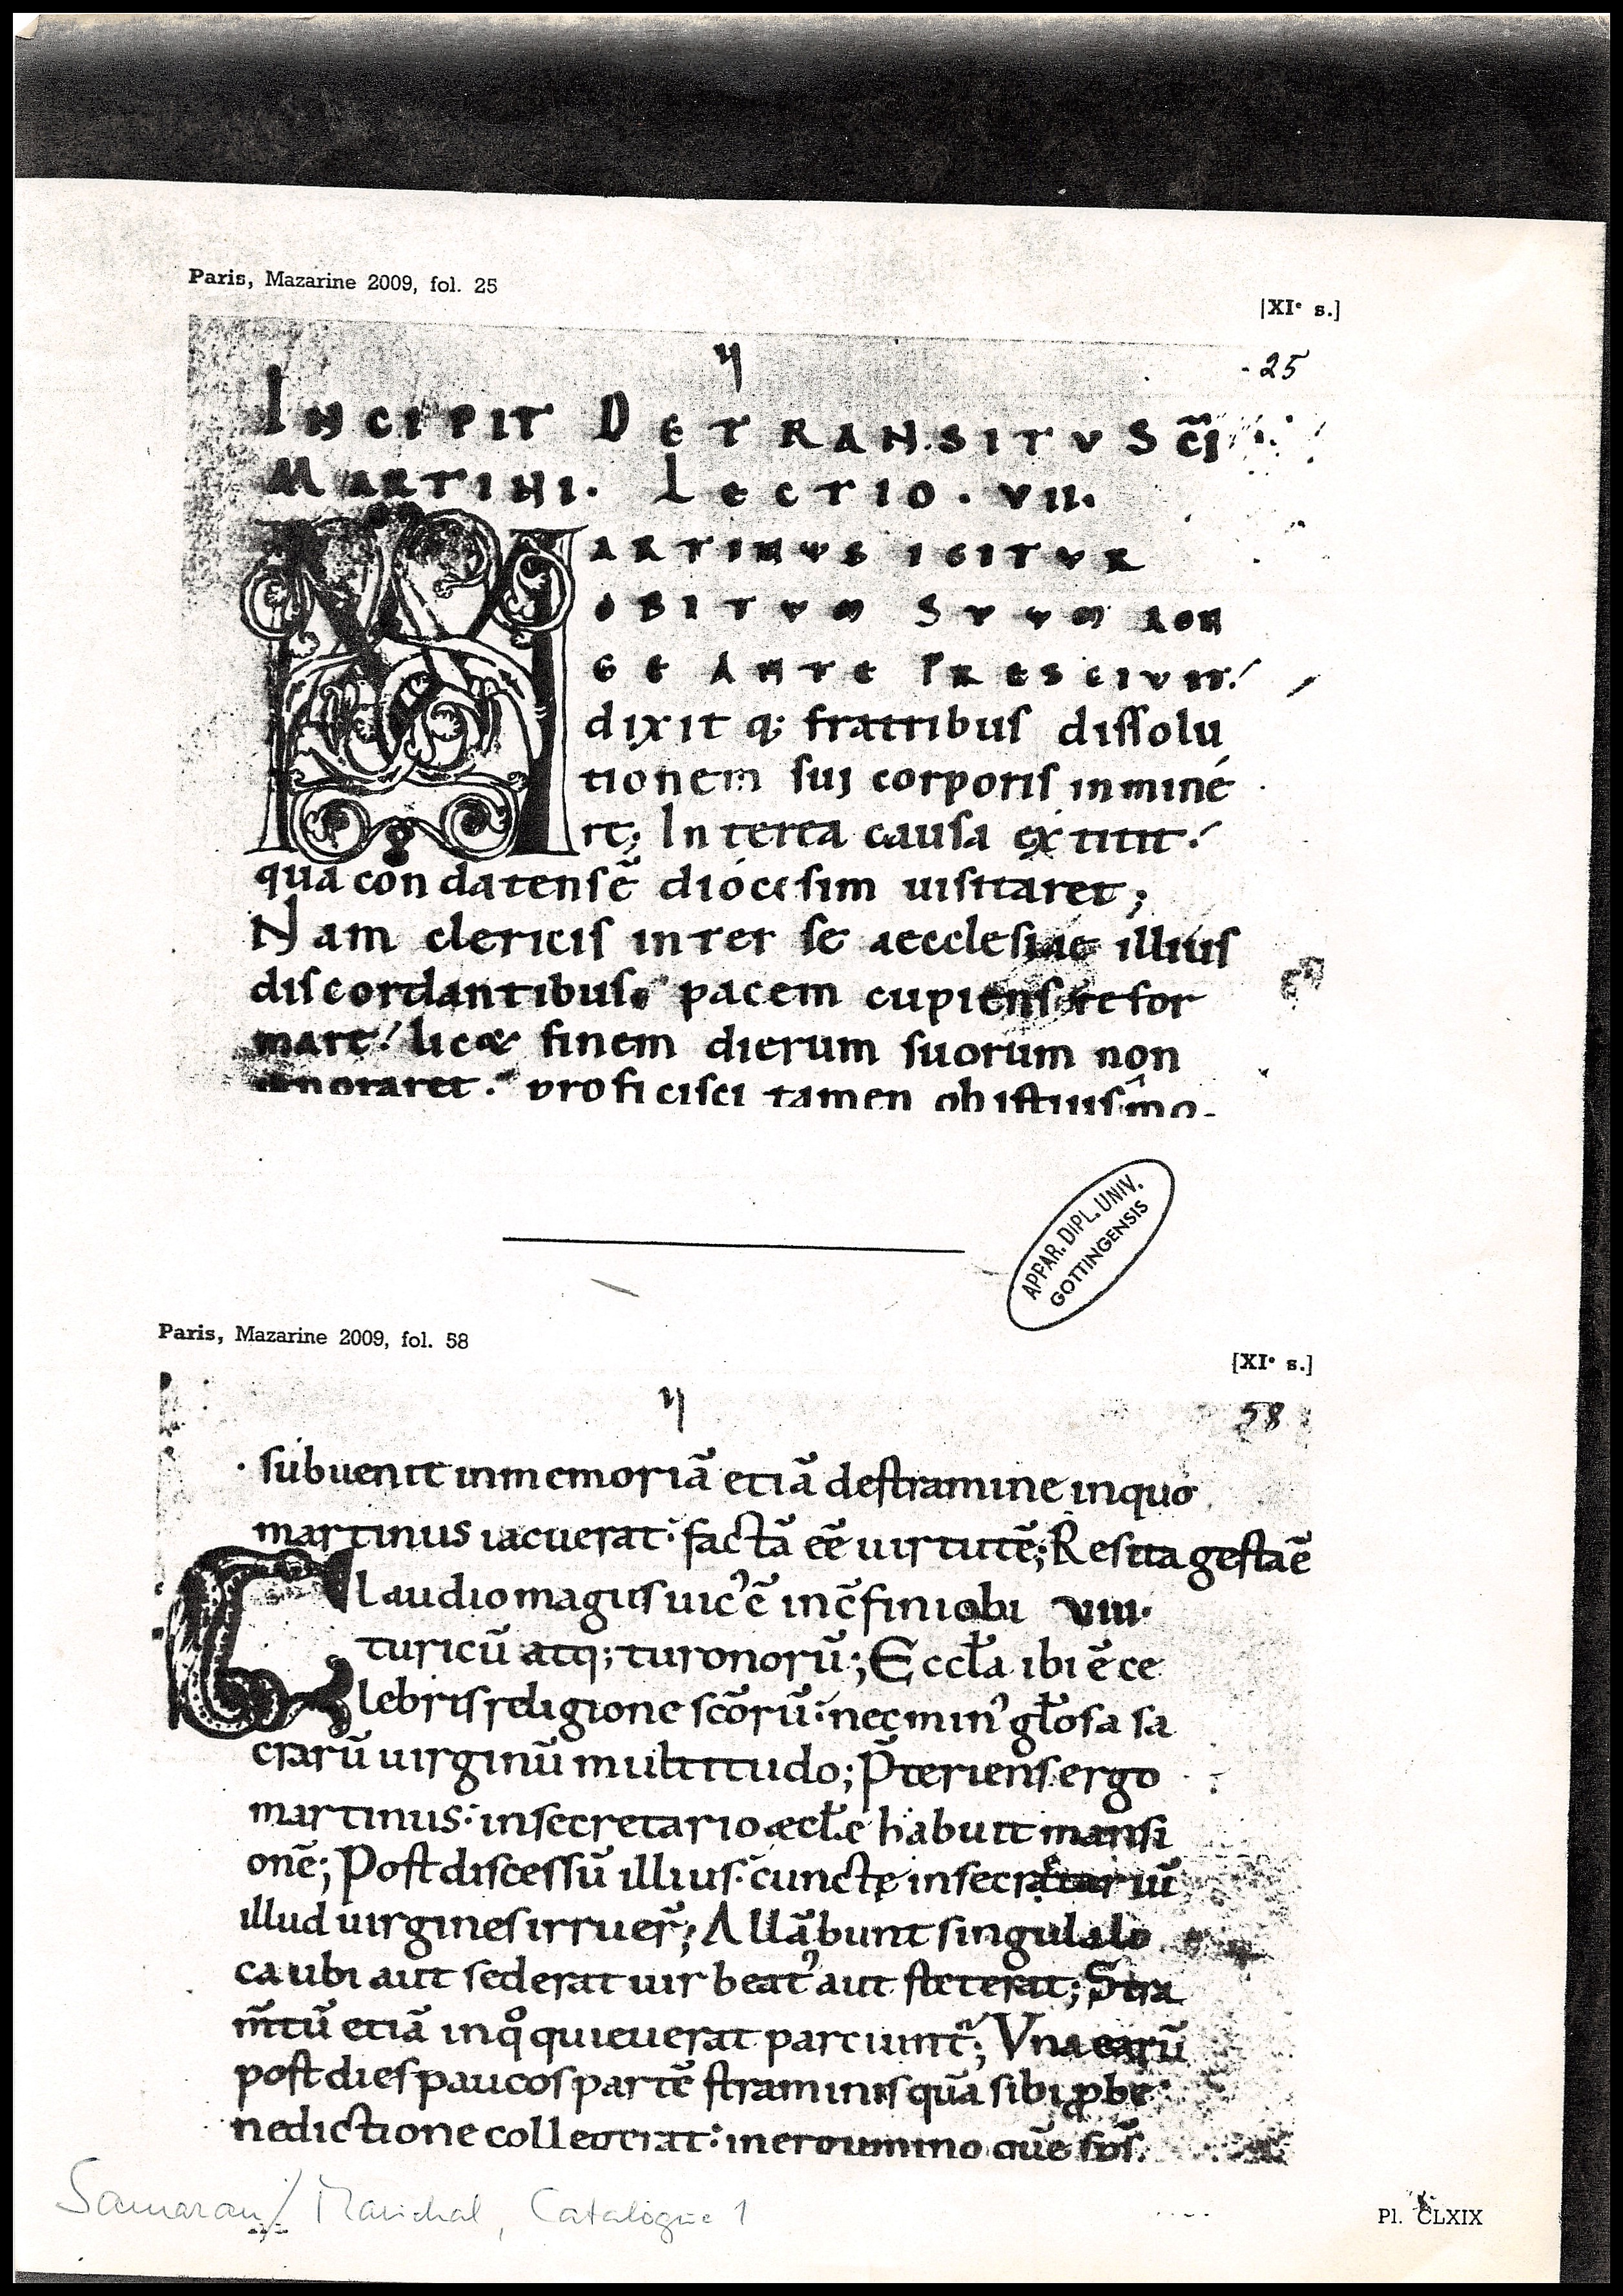 Paris, Mazarine 2009, fol. 25
[XIᵉ s.]
25
INCIPIT DETRANSITV SC̃I
MARTINI. LECTIO. VII.
ARTINVS IGITVR
OBITVM SVVM LON
GE ANTE PRESCIVIT.
dixit q; fratribus dissolu
tionem sui corporis inminé
re; Interea causa extitit.
qua condatensē diocesim uisitaret;
Nam clericis inter se aecclesiae illius
discordantibus. pacem cupiens refor
mare. licet finem dierum suorum non
ignoraret. proficisci tamen ob istiusmo-
APPAR. DIPL. UNIV.
GOTTINGENSIS
Paris, Mazarine 2009, fol. 58
[XIᵉ s.]
58
subuenit inmemoriā etiā destramine inquo
martinus iacuerat. factā eē uirtutē; Resita gestaē
Claudiomagus uic'ē incēfinio bi VIII.
turicū atq; turonorū; Eccl̃a ibi ē ce
lebris religione scōrū. nec min' gl̃osa sa
crarū uirginū multitudo; P̄teriens ergo
martinus. insecretario æcl̃e habuit mansi
onē; Post discessū illius. cunctę insecretariū
illud uirgines irruer̄; Allābunt singula lo
ca ubi aut sederat uir beat' aut steterat; Stra
m̄tū etiā inqͦ quieuerat partiunt̃; Vna earū
post dies paucos partē straminis quā sibi ꝓ be
nedictione collegerat. inergumino quē sp̄s.
Samaran / Marichal, Catalogue 1
Pl. CLXIX